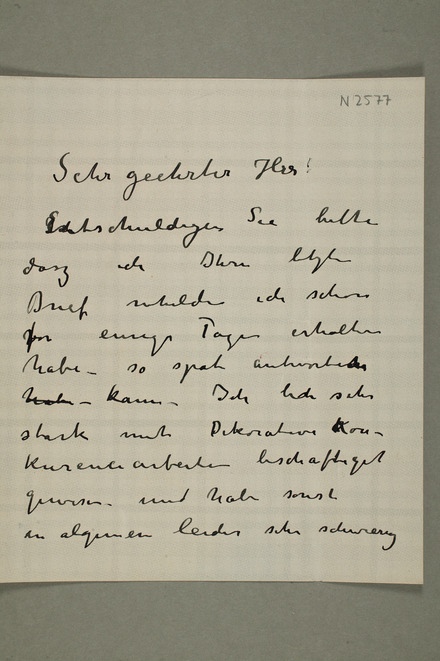 N 2577
Sehr geehrter Herr!
Entschuldigen Sie bitte
dasz ich Ihren letzten
Brief welchen ich schon
vor einige Tagen erhalten
habe – so spät antworten
habe – kann – Ich bin sehr
stark mit Dekorative Kon-
kurencearbeiten beschäftiget
gewesen – und habe sonst
in algemein leider sehr schwierig